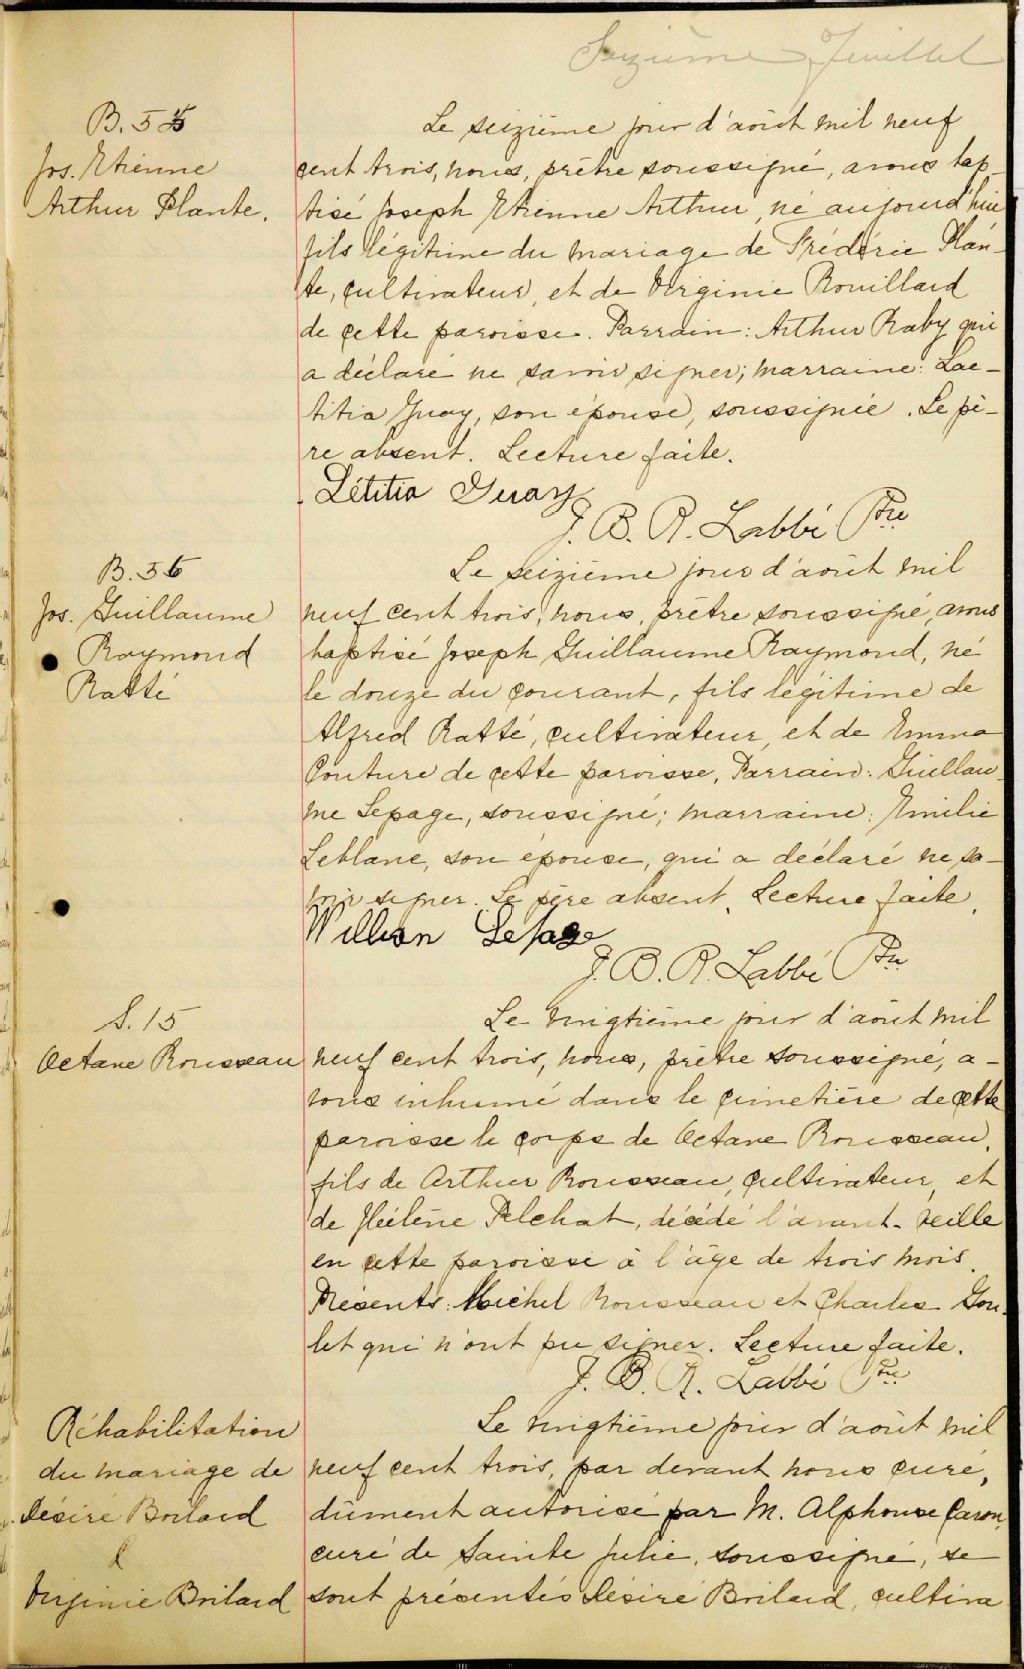 Seizième Juillet
B. 55
Jos. Etienne
Arthur Plante.
Le seizième jour d'août mil neuf
cent trois, nous, prêtre soussigné, avons bap-
tisé Joseph Etienne Arthur, né aujourd'hui
fils légitime du mariage de Frédéric Plan-
te, cultivateur, et de Virginie Rouillard
de cette paroisse. Parrain: Arthur Raby qui
a déclaré ne savoir signer; marraine: Lae-
titia Guay, son épouse, soussignée. Le pè-
re absent. Lecture faite.
Létitia Guay
J. B. R. Labbé Ptre
B. 56
Jos. Guillaume
Raymond
Ratté
Le seizième jour d'août mil
neuf cent trois, nous, prêtre soussigné, avons
baptisé Joseph Guillaume Raymond, né
le douze du courant, fils légitime de
Alfred Ratté, cultivateur, et de Emma
Couture de cette paroisse, Parrain: Guillau-
me Lepage, soussigné; marraine: Emilie
Leblanc, son épouse, qui a déclaré ne sa-
voir signer. Le père absent. Lecture faite.
William Lepage
J. B. R. Labbé Ptre
S. 15
Octave Rousseau
Le vingtième jour d'août mil
neuf cent trois, nous, prêtre soussigné, a-
vons inhumé dans le cimetière de cette
paroisse le corps de Octave Rousseau,
fils de Arthur Rousseau, cultivateur, et
de Hélène Pelchat, décédé l'avant-veille
en cette paroisse à l'âge de trois mois.
Présents: Michel Rousseau et Charles Gou-
let qui n'ont pu signer. Lecture faite.
J. B. R. Labbé Ptre
Réhabilitation
du mariage de
Désiré Boilard
&
Virginie Boilard
Le vingtième jour d'août mil
neuf cent trois, par devant nous curé,
dûment autorisé par M. Alphonse Caron,
curé de Sainte Julie, soussigné, se
sont présentés Désiré Boilard, cultiva